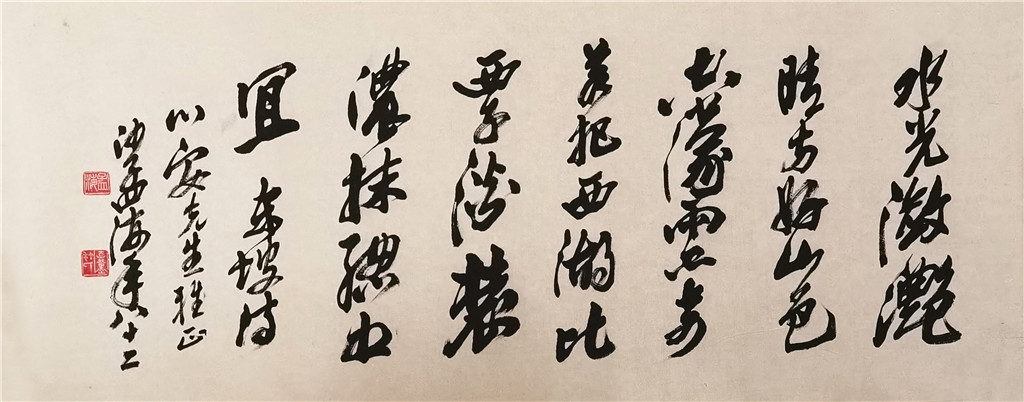 水光瀲灩
晴方好山色
空濛雨亦奇
若把西湖比
西子淡妝
濃抹總相
宜 東坡詩
安先生雅正
沙孟海年八十二
孟海